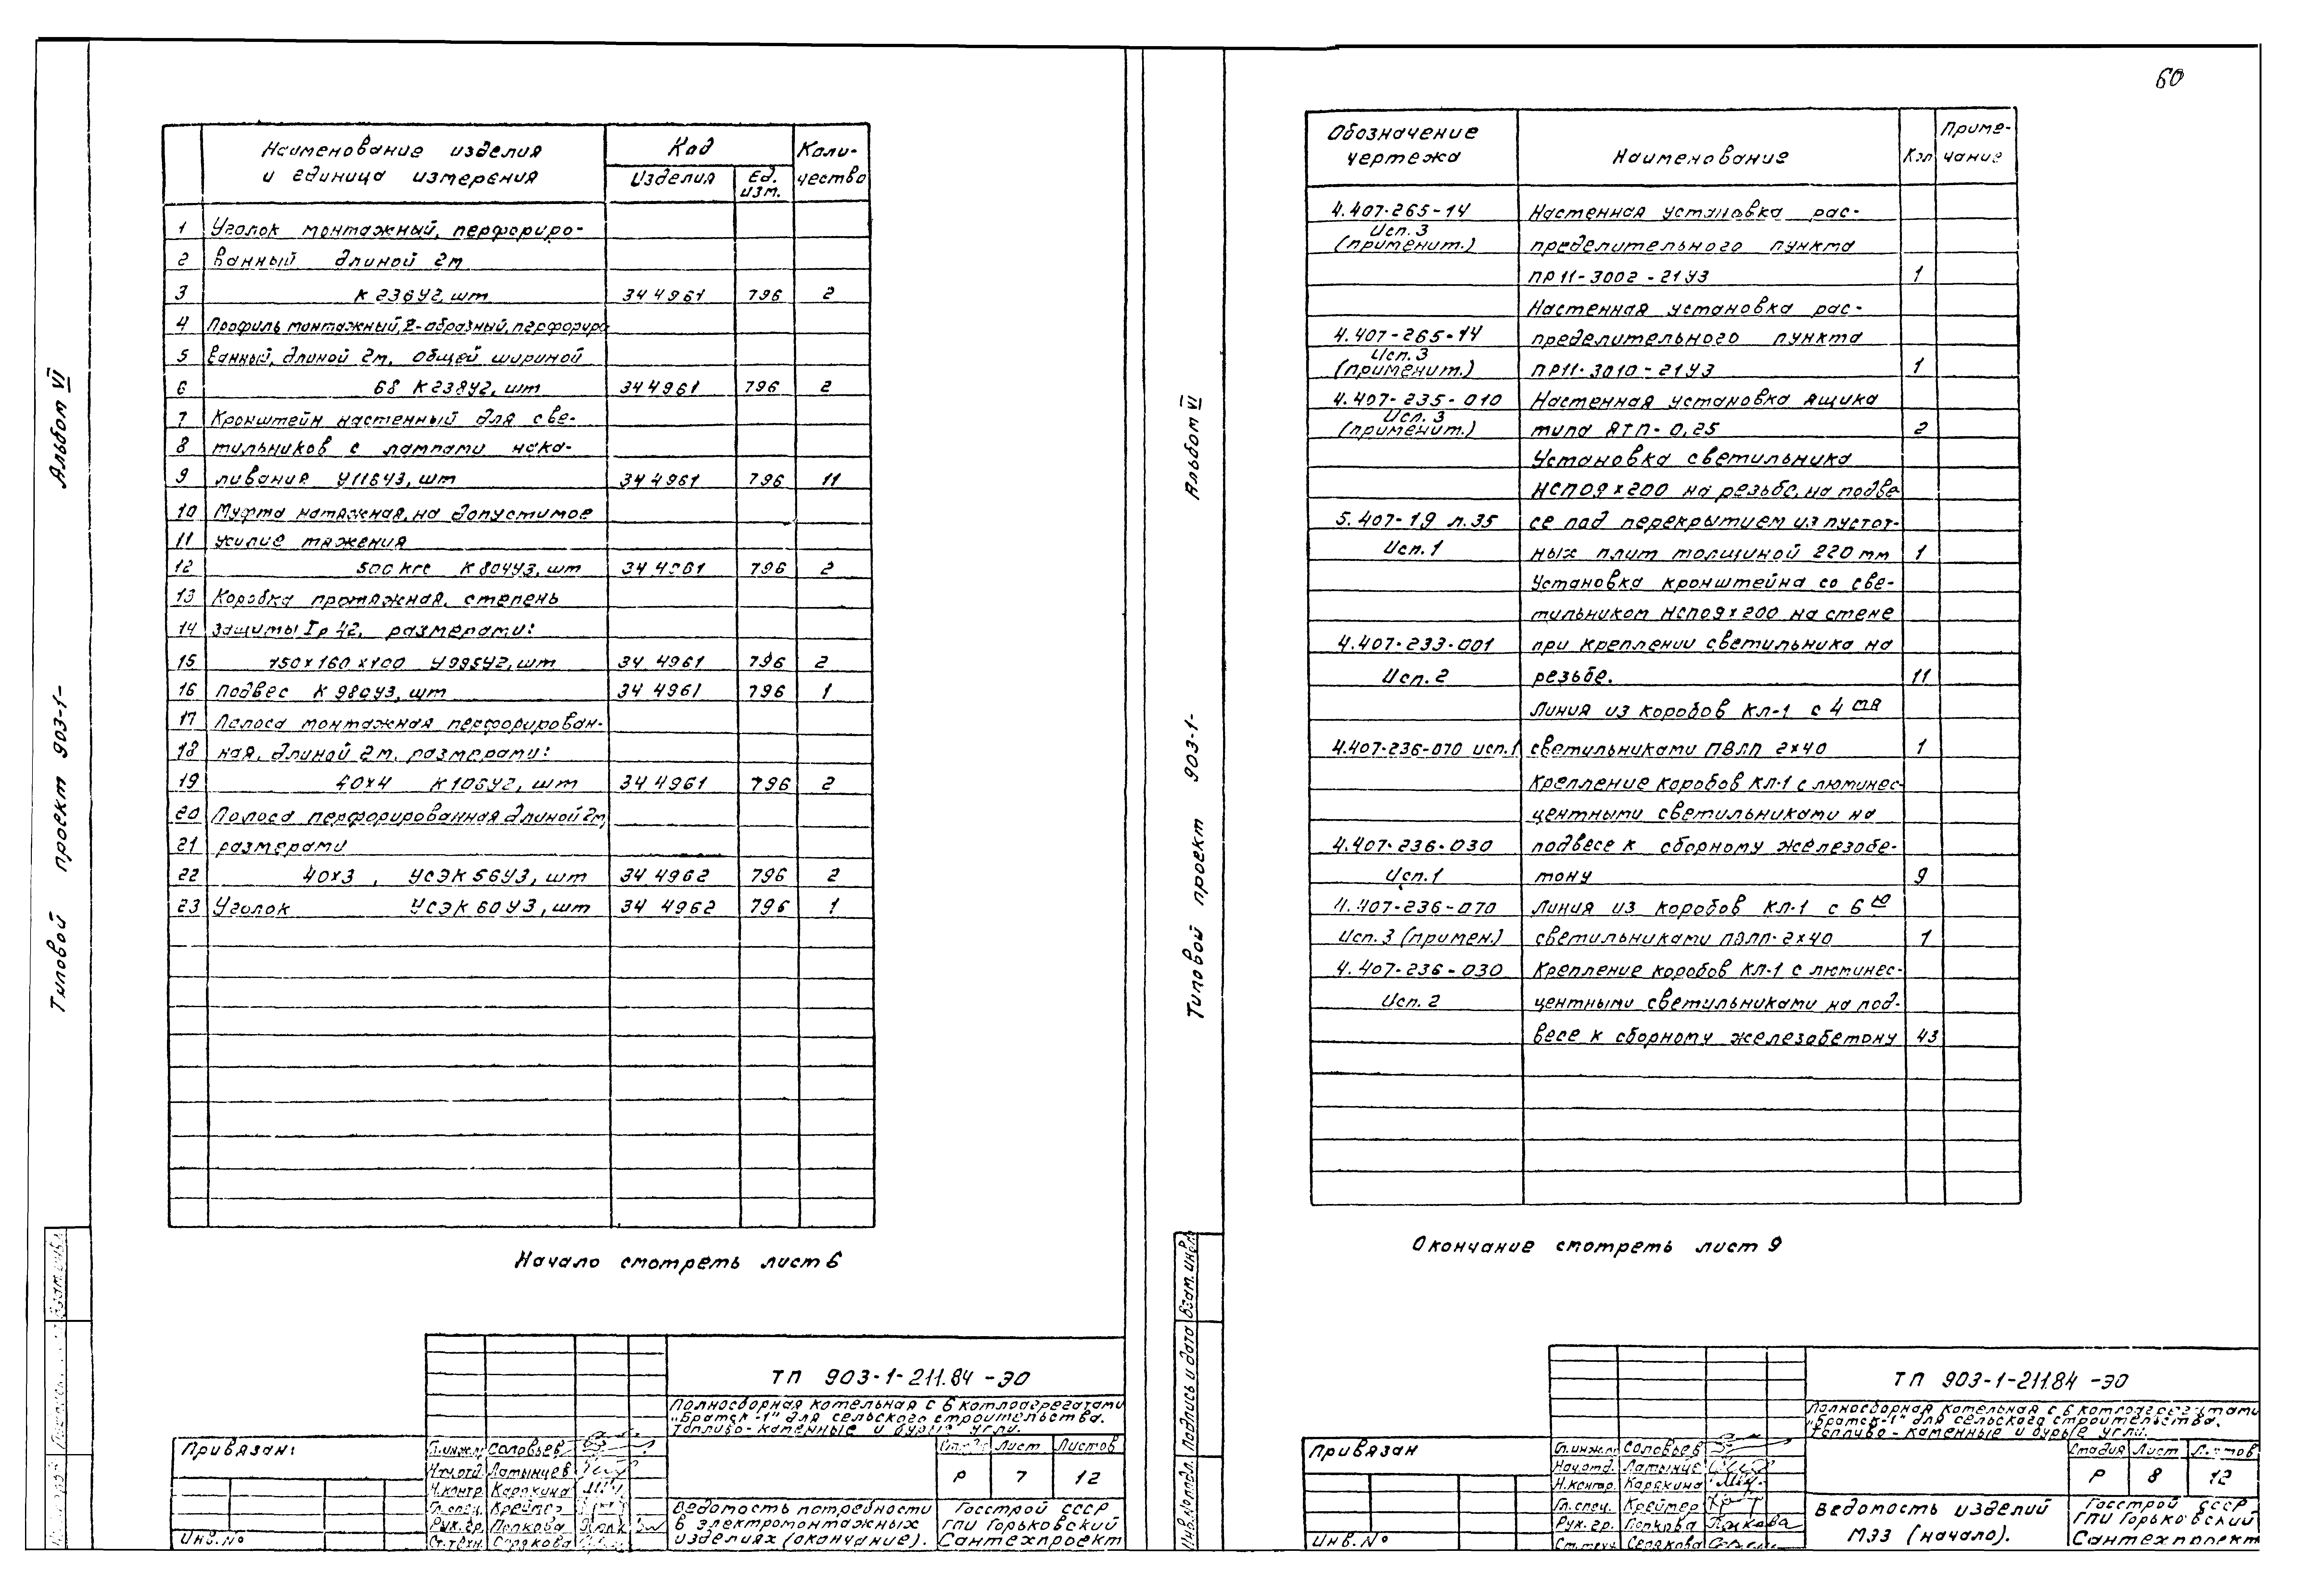 60
Альбом VI
Типовой проект 903-1-
Наименование изделия
и единица измерения
Код
Изделия
Ед.
изм.
Коли-
чество
1 Уголок монтажный, перфориро-
2 ванный длиной 2м
3 К 236У2, шт 34 4961 796 2
4 Профиль монтажный, Z-образный, перфориро
5 ванный, длиной 2м, общей шириной
6 68 К238У2, шт 34 4961 796 2
7 Кронштейн настенный для све-
8 тильников с лампами нака-
9 ливания У116У3, шт 34 4961 796 11
10 Муфта натяжная, на допустимое
11 усилие тяжения
12 500 кгс К 804У3, шт 34 4961 796 2
13 Коробка протяжная, степень
14 защиты Iр 42, размерами:
15 150х160х100 У995У2, шт 34 4961 796 2
16 Подвес К 980У3, шт 34 4961 796 1
17 Полоса монтажная перфорирован-
18 ная, длиной 2м, размерами:
19 40х4 К106У2, шт 34 4961 796 2
20 Полоса перфорированная длиной 2м,
21 размерами
22 40х3 , УСЭК56У3, шт 34 4962 796 2
23 Уголок УСЭК 60У3, шт 34 4962 796 1
Начало смотреть лист 6
ТП 903-1-211.84 -ЭО
Полносборная котельная с 6 котлоагрегатами
„Братск-1" для сельского строительства.
Топливо-каменные и бурые угли.
Привязан:
Инв. №
Гл.инж. Соловьев
Нач.отд. Латынцев
Н.контр. Карякина
Гл.спец. Креймер
Рук.гр. Попкова
Ст.техн.
Лист Листов
Р 7 12
Ведомость потребности
в электромонтажных
изделиях (окончание).
Госстрой СССР
ГПИ Горьковский
Сантехпроект
Альбом VI
Типовой проект 903-1-
Инв.№ подл. Подпись и дата Взам.инв.№
Обозначение
чертежа
Наименование
Кол
Приме-
чание
4.407-265-14 Настенная установка рас-
Исп. 3
(применит.) пределительного пункта
ПР11-3002-21У3 1
Настенная установка рас-
4.407-265-14 пределительного пункта
Исп. 3
(применит.) ПР11-3010-21У3 1
4.407-235-010 Настенная установка ящика
Исп. 3
(применит.) типа ЯТП-0,25 2
Установка светильника
НСП09х200 на резьбе, на подве
5.407-19 л.35 се под перекрытием из пустот-
Исп. 1 ных плит толщиной 220 мм 1
Установка кронштейна со све-
тильником НСП09х200 на стене
4.407-233-001 при креплении светильника на
Исп. 2 резьбе. 11
Линия из коробов КЛ-1 с 4 мя
4.407-236-070 исп.1 светильниками ПВЛП 2х40 1
Крепление коробов КЛ-1 с люминес-
центными светильниками на
4.407-236-030 подвесе к сборному железобе-
Исп. 1 тону 9
4.407-236-070 Линия из коробов КЛ-1 с 6 ю
Исп. 3 (примен.) светильниками ПВЛП-2х40 1
4.407-236-030 Крепление коробов КЛ-1 с люминес-
Исп. 2 центными светильниками на под-
весе к сборному железобетону 43
Окончание смотреть лист 9
ТП 903-1-211.84 -ЭО
Полносборная котельная с 6 котлоагрегатами
„Братск-1" для сельского строительства.
Топливо-каменные и бурые угли.
Привязан
Инв. №
Гл.инж. Соловьев
Нач.отд. Латынцев
Н.контр. Карякина
Гл.спец. Креймер
Рук.гр. Попкова
Ст.техн.
Стадия Лист Листов
Р 8 12
Ведомость изделий
МЭЗ (начало).
Госстрой СССР
ГПИ Горьковский
Сантехпроект